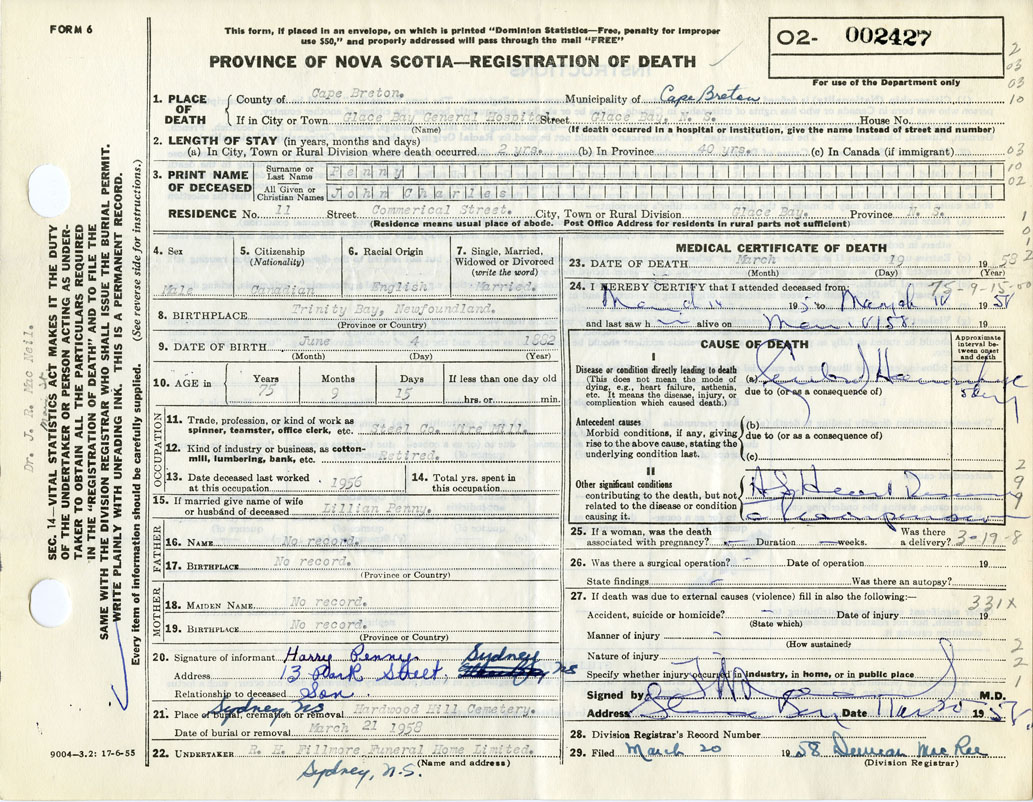 FORM 6
This form, if placed in an envelope, on which is printed "Dominion Statistics—Free, penalty for improper
use $50," and properly addressed will pass through the mail "FREE"
PROVINCE OF NOVA SCOTIA—REGISTRATION OF DEATH
02- 002427
For use of the Department only
2
03
03
10
1. PLACE OF DEATH
County of Cape Breton. Municipality of Cape Breton
If in City or Town Glace Bay General Hospital Street Glace Bay, N. S. House No.
(Name) (If death occurred in a hospital or institution, give the name instead of street and number)
2. LENGTH OF STAY (in years, months and days)
(a) In City, Town or Rural Division where death occurred 2 yrs. (b) In Province 40 yrs. (c) In Canada (if immigrant)
03
10
02
3. PRINT NAME OF DECEASED
Surname or Last Name Penny
All Given or Christian Names John Charles
RESIDENCE No. 11 Street Commerical Street. City, Town or Rural Division Glace Bay. Province N. S.
(Residence means usual place of abode. Post Office Address for residents in rural parts not sufficient)
4. Sex
Male
5. Citizenship
(Nationality)
Canadian
6. Racial Origin
English
7. Single, Married,
Widowed or Divorced
(write the word)
Married.
8. BIRTHPLACE Trinity Bay, Newfoundland.
(Province or Country)
9. DATE OF BIRTH June 4 1882
(Month) (Day) (Year)
10. AGE in
Years Months Days If less than one day old
75 9 15 hrs. or min.
OCCUPATION
11. Trade, profession or kind of work as
spinner, teamster, office clerk, etc. Steel Co. Wire Mill.
12. Kind of industry or business, as cotton-
mill, lumbering, bank, etc. Retired.
13. Date deceased last worked
at this occupation 1956
14. Total yrs. spent in
this occupation
15. If married give name of wife
or husband of deceased Lillian Penny.
FATHER
16. NAME No record.
17. BIRTHPLACE No record.
(Province or Country)
MOTHER
18. MAIDEN NAME No record.
19. BIRTHPLACE No record.
(Province or Country)
20. Signature of informant Harry Penny
Address 13 Park Street, Sydney NS
Relationship to deceased Son
Sydney NS
21. Place of burial, cremation or removal Hardwood Hill Cemetery.
Date of burial or removal March 21 1958
22. UNDERTAKER R. H. Fillmore Funeral Home Limited.
(Name and address)
Sydney, N.S.
MEDICAL CERTIFICATE OF DEATH
23. DATE OF DEATH March 19 1958
(Month) (Day) (Year)
24. I HEREBY CERTIFY that I attended deceased from:
75-9-15-00
and last saw h alive on 19
CAUSE OF DEATH
Approximate
interval be-
tween onset
and death
I
Disease or condition directly leading to death
(This does not mean the mode of
dying, e.g., heart failure, asthenia,
etc. It means the disease, injury, or
complication which caused death.)
(a) Cerebral Hemorrhage
due to (or as a consequence of)
Antecedent causes
Morbid conditions, if any, giving
rise to the above cause, stating the
underlying condition last.
(b)
due to (or as a consequence of)
(c)
II
Other significant conditions
contributing to the death, but not
related to the disease or condition
causing it.
Heart Disease
25. If a woman, was the death
associated with pregnancy? Duration weeks.
Was there
a delivery? 3-19-8
26. Was there a surgical operation? Date of operation 19
State findings Was there an autopsy?
27. If death was due to external causes (violence) fill in also the following:—
331X
Accident, suicide or homicide? Date of injury 19
(State which)
Manner of injury
(How sustained)
Nature of injury
Specify whether injury occurred in industry, in home, or in public place
Signed by M.D.
Address Glace Bay Date Mar 20 1958
28. Division Registrar's Record Number
29. Filed March 20 1958 Duncan MacRae
(Division Registrar)
9004—3.2: 17-6-55
SEC. 14—VITAL STATISTICS ACT MAKES IT THE DUTY
OF THE UNDERTAKER OR PERSON ACTING AS UNDER-
TAKER TO OBTAIN ALL THE PARTICULARS REQUIRED
IN THE "REGISTRATION OF DEATH" AND TO FILE THE
SAME WITH THE DIVISION REGISTRAR WHO SHALL ISSUE THE BURIAL PERMIT.
WRITE PLAINLY WITH UNFADING INK. THIS IS A PERMANENT RECORD.
Every item of information should be carefully supplied. (See reverse side for instructions.)
Dr. J. R. Mac Neil.